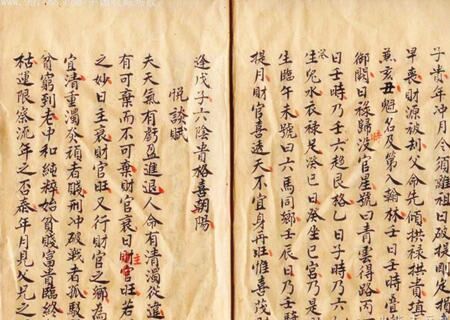 子貴年冲月令須離祖日破提剛定損
早喪財源被刦父命先傾拱禄拱貴填
兼亥丑魁名及第入翰林壬日壬時喜
御閣日禄歸沒官星號曰青雲得路丙
日壬時乃壬六趨艮格乙日子時乃六
生兒水衣禄足癸巳日癸坐巳宮乃是
生臨午未號曰六馬同鄉壬辰日乃壬騎
提月財官喜透天不宜身旺惟喜茂
逢戊子六陰貴格喜朝陽
悅談賦
夫天氣有虧盈進退人命有清濁從進
有可棄而不可棄財官衰日主財官旺若
之妙日主衰財官旺又行財官之鄉為
宜清重濁者賤刑冲破戰者孤駁
貧窮到老中和純粹始貧賤富貴臨終
枯運限祭流年之否泰年月見父兄之